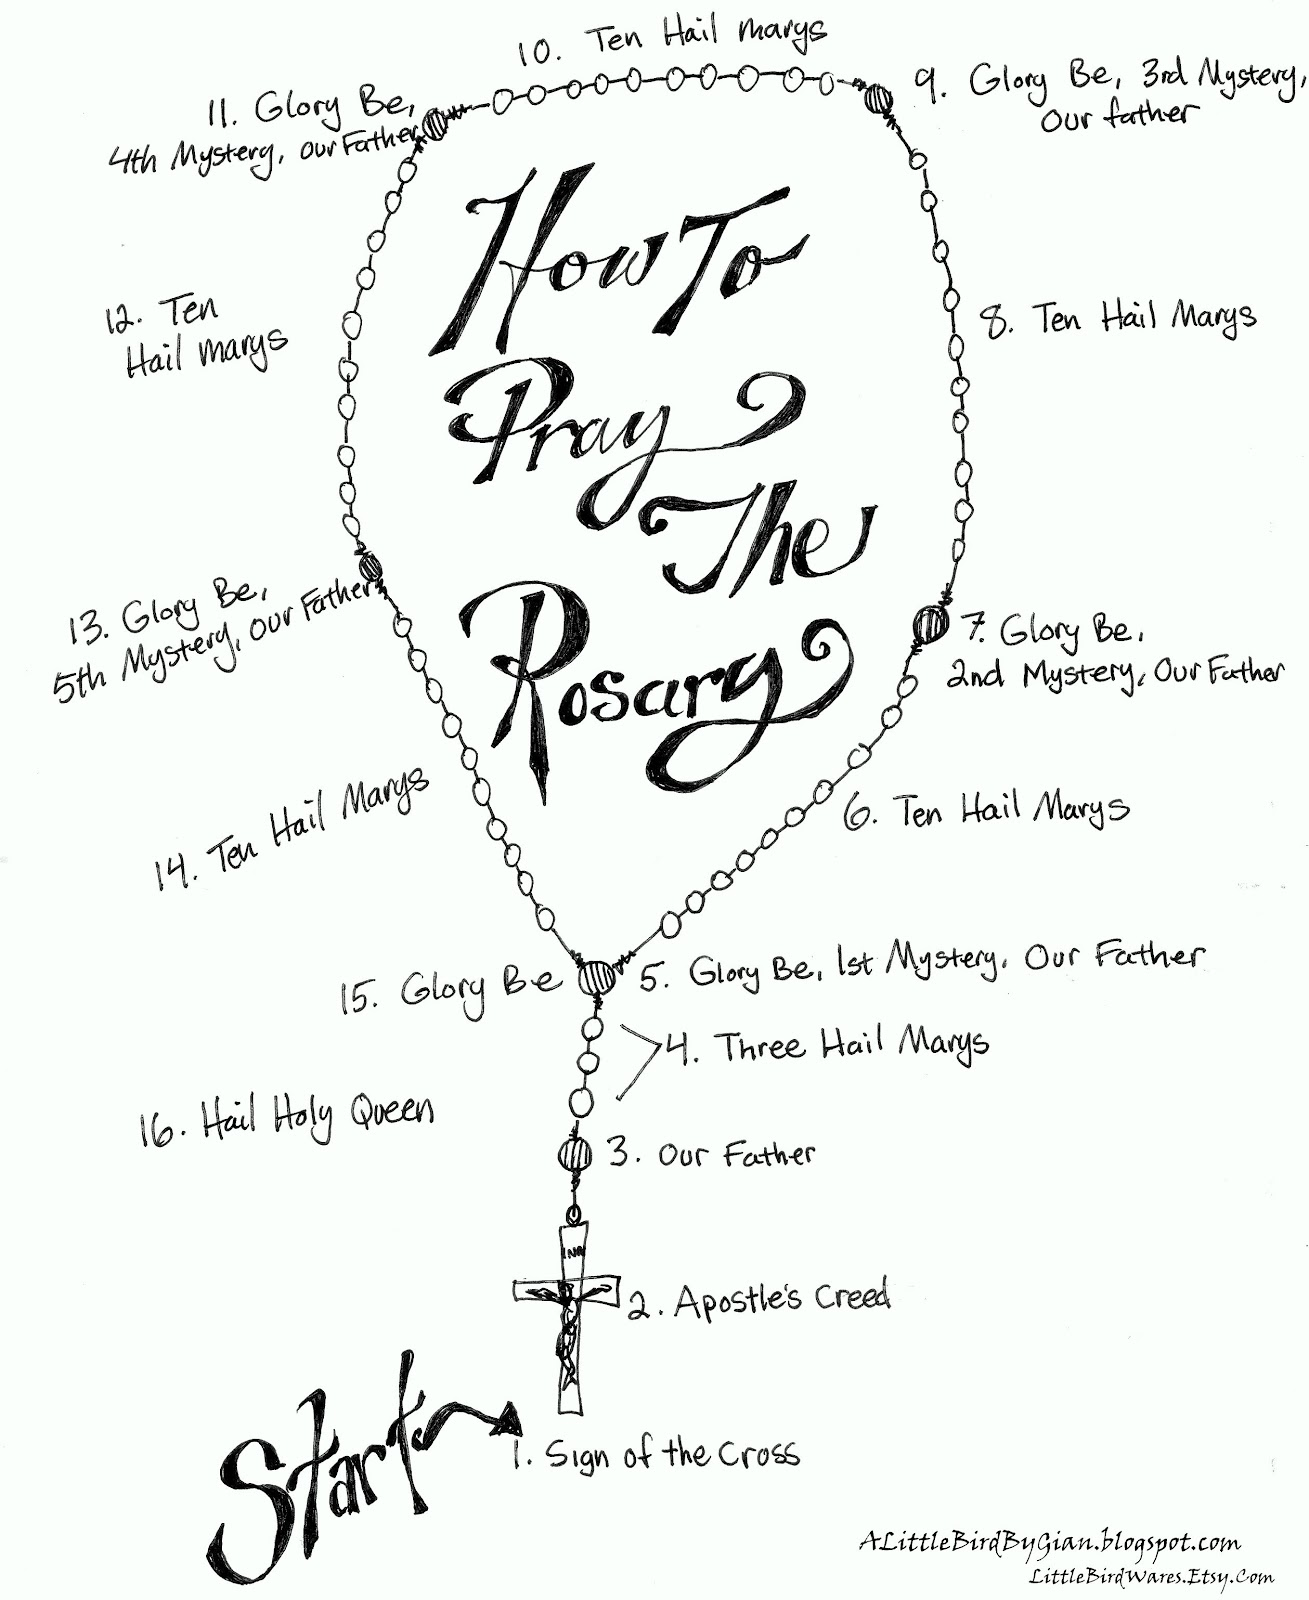 10. Ten Hail marys
11. Glory Be,
4th Mystery, our Father
9. Glory Be, 3rd Mystery,
Our father
How To
Pray
The
Rosary
12. Ten
Hail marys
8. Ten Hail Marys
13. Glory Be,
5th Mystery, our Father
7. Glory Be,
2nd Mystery, Our Father
14. Ten Hail Marys
6. Ten Hail Marys
15. Glory Be
5. Glory Be, 1st Mystery, Our Father
4. Three Hail Marys
16. Hail Holy Queen
3. Our Father
INRI
2. Apostle's Creed
Start
1. Sign of the Cross
ALittleBirdByGian.blogspot.com
LittleBirdWares.Etsy.Com